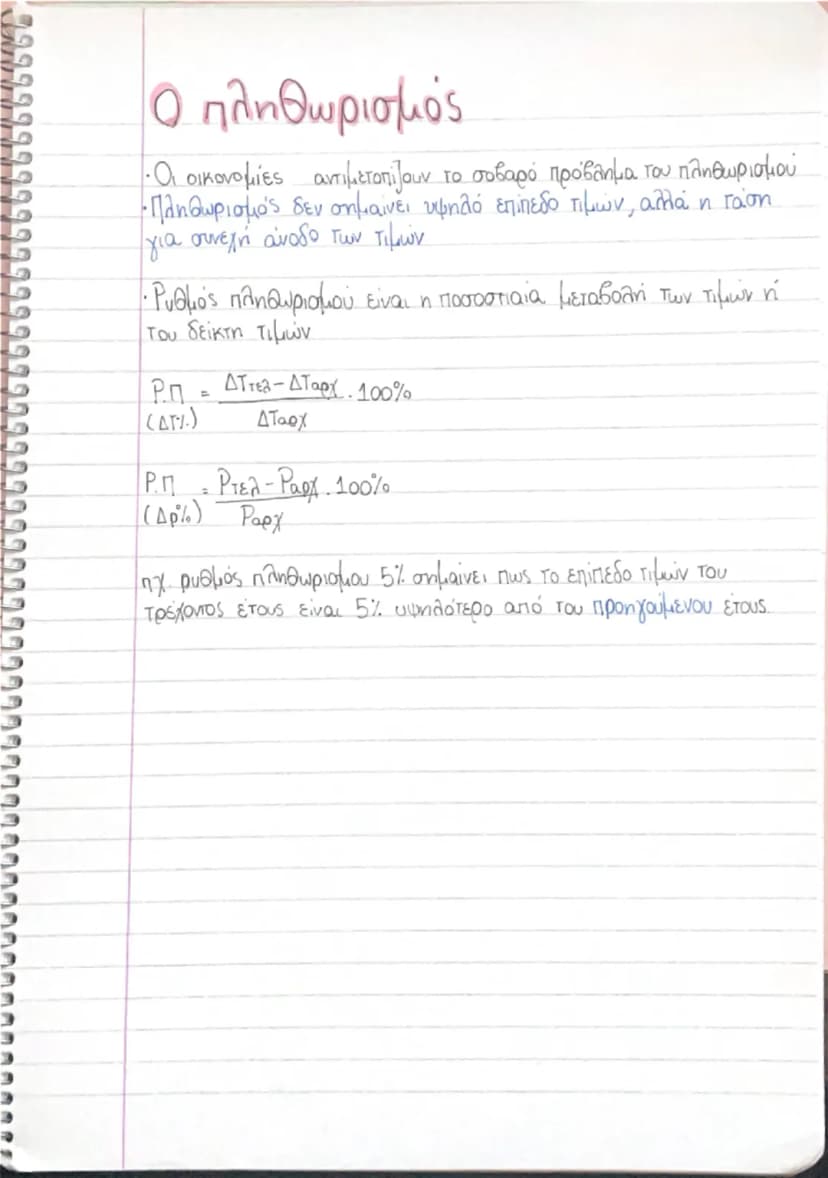 Ο πληθωρισμός
· Οι οικονομίες αντιμετοπίζουν το σοβαρό πρόβλημα του πληθωρισμού
· Πληθωρισμός δεν σημαίνει υψηλό επίπεδο τιμών, αλλά η τάση
για συνεχή άνοδο των τιμών
· Ρυθμός πληθωρισμού είναι η ποσοστιαία μεταβολή των τιμών ή
του δείκτη τιμών
Ρ.Π = ΔΤτελ - ΔΤαρχ . 100%
(ΔΤ%) ΔΤαρχ
Ρ.Π = Ρτελ - Ραρχ . 100%
(Δρ%) Ραρχ
πχ. ρυθμός πληθωρισμου 5% σημαίνει πως το επίπεδο τιμών του
τρέχοντος έτους είναι 5% υψηλότερο από του προηγούμενου έτους.